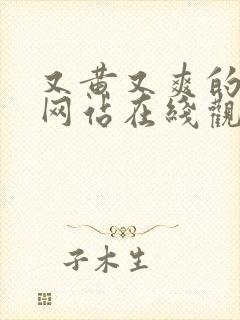 又黄又爽的
网站在线觀
子木生